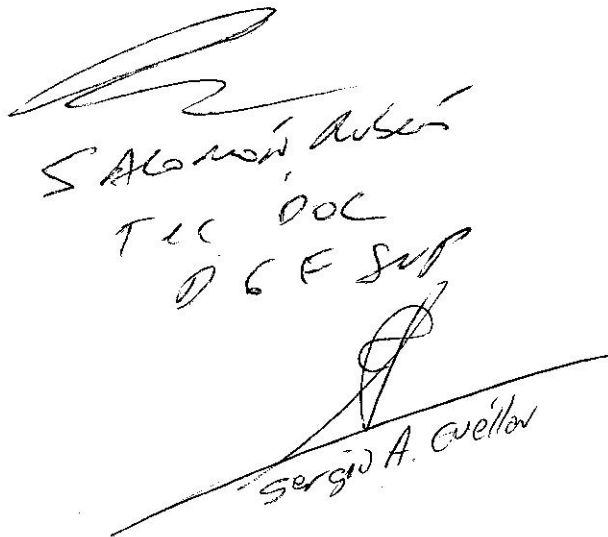 SALOMÓN Rubén
TEC DOC
DGE SUP
Sergio A. Cuéllar